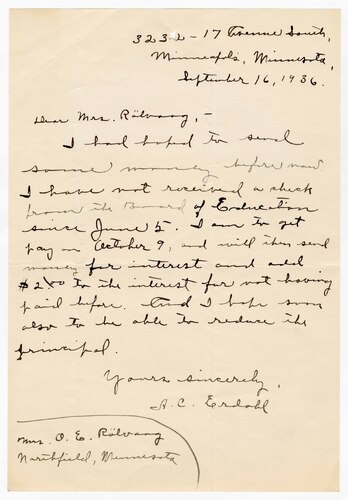 3232 - 17 Avenue South,
Minneapolis, Minnesota,
September 16, 1936.
Dear Mrs. Rölvaag, -
I had hoped to send
some money before now.
I have not received a check
from the Board of Education
since June 5. I am to get
pay on October 9, and will then send
money for interest and add
$2.00 to the interest for not having
paid before. And I hope soon
also to be able to reduce the
principal.
Yours sincerely,
A. C. Erdahl
Mrs. O. E. Rölvaag
Northfield, Minnesota